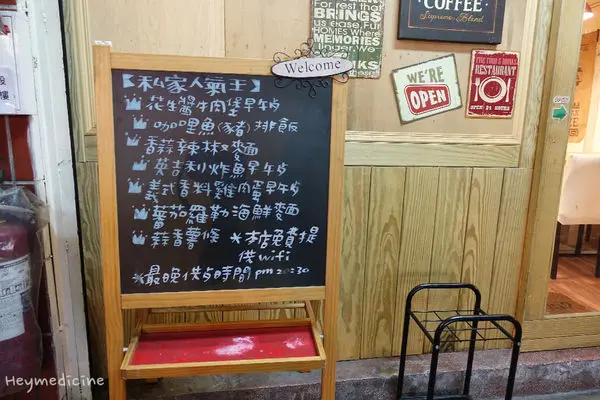 For rest that
BRINGS
us ease.
For homes
where
MEMORIES
COFFEE
Supreme Blend
Welcome
WE'RE
OPEN
RESTAURANT
OPEN 24 HOURS
【私家人氣王】
花生醬牛肉堡早午
咖哩魚(豬)排飯
蒜辣椒麵
莫吉利炸魚早午
義式香料雞肉蛋早午
蕃茄羅勒海鮮麵
蒜香薯條
*本店免費提
供wifi
*最晚供時間pm 20:30
Heymedicine